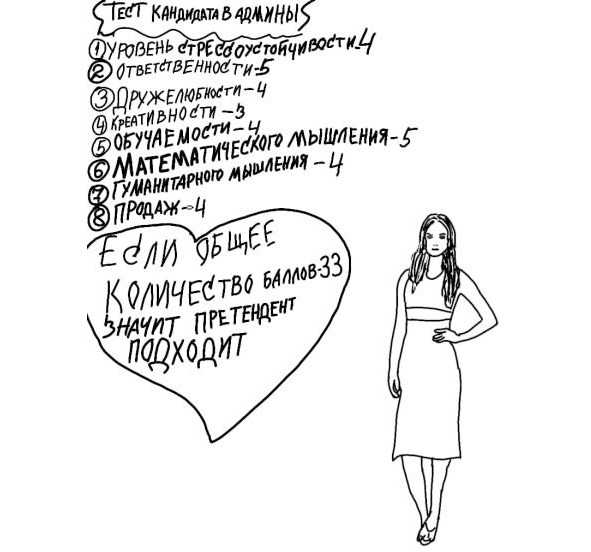 ТЕСТ КАНДИДАТА В АДМИНЫ
1 УРОВЕНЬ СТРЕССОУСТОЙЧИВОСТИ-4
2 ОТВЕТСТВЕННОСТИ-5
3 ДРУЖЕЛЮБНОСТИ-4
4 КРЕАТИВНОСТИ-3
5 ОБУЧАЕМОСТИ-4
6 МАТЕМАТИЧЕСКОГО МЫШЛЕНИЯ-5
7 ГУМАНИТАРНОГО МЫШЛЕНИЯ-4
8 ПРОДАЖ-4
ЕСЛИ ОБЩЕЕ
КОЛИЧЕСТВО БАЛЛОВ-33
ЗНАЧИТ ПРЕТЕНДЕНТ
ПОДХОДИТ